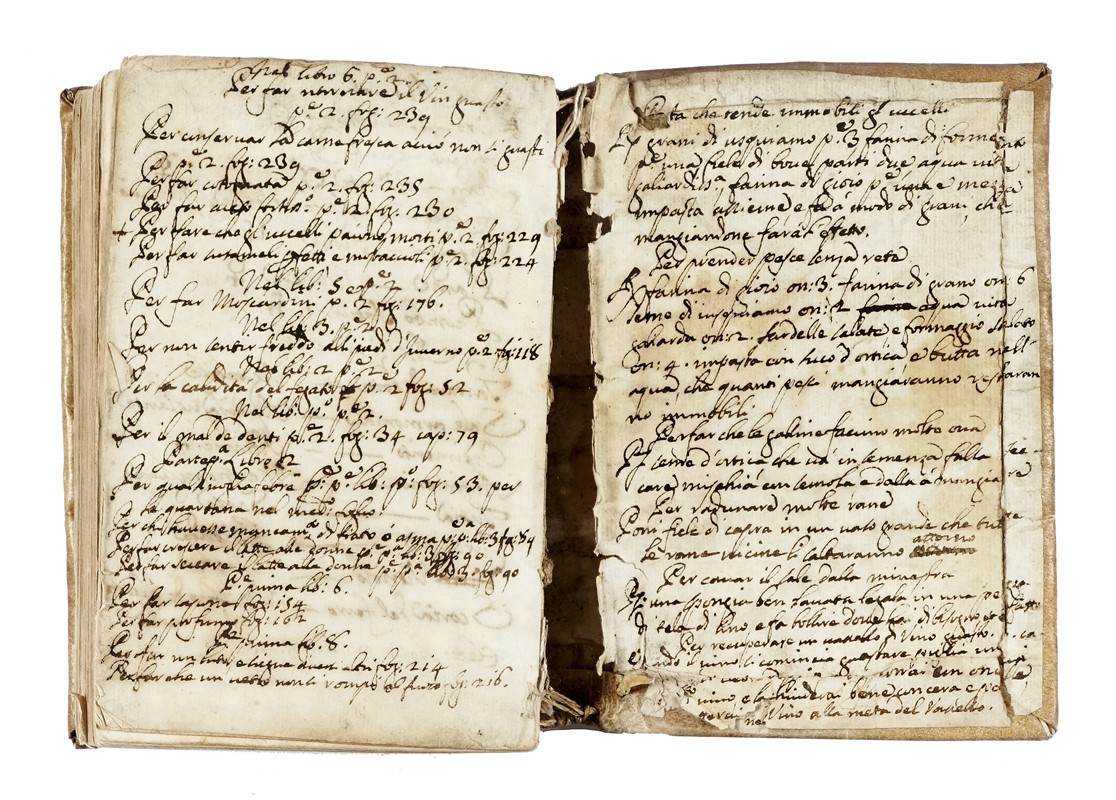 Nel libro 6. p.e 2
Per far ritornare il Vin guasto
p.e 2. fog: 239
Per conservar la carne fresca acciò non si guasti
p.e 2. fog: 239
Per far cotognata p.e 2. fog: 235
Per far aceto fortiss.o p.e 2 fog: 230
+ Per fare che gl'uccelli paiino morti p.e 2. fog: 229
Per far caramelli, e mostaccioli p.e 2. fog: 224
Nel lib: 5 p.e 2
Per far Moscardini p.e 2 fog: 176.
Nel lib: 3. p.e 2
Per non sentir freddo alli piedi d'Inverno p.e 2 fog: 118
Nel lib: 2 p.e 2
Per la calidità del fegato p.e 2 fog: 52
Nel lib: p.o p.e 2.
Per il mal de denti p.e 2. fog: 34 cap: 79
Parte p.a Libro 2
Per quartana febre p.e p.a lib: p.o fog: 53. per
la quartana nel med.o foglio
Per chi havesse mancam.to di fiato o asma p.e p.a lib: 3 fog: 84
Per far crescere il latte alle donne p.e p.a lib: 3 fog: 90
Per far seccare il latte alla donna p.e p.a lib 3 fog: 90
P.e prima lib: 6.
Per far sapone fog: 154
Per far profumo fog: 162
P.e prima lib. 8.
Per far un fog: 214
Per far che un vetro non si rompi al fuoco fog: 216.
Pasta che rende immobili gl'uccelli
Rx grani di iusquiamo p.e 3 farina di formento
p.e una fiele di bove parti due aqua vita
galiardiss.a, farina di gioio p.e una e meza
impasta assieme e fà à modo di grani, che
mangiandone farà l'effetto.
Per prender pesce senza rete
Rx farina di gioio on: 3. farina di grano on: 6
seme di iusquiamo on: 2 aqua vita
gaiarda on: 2. sardelle salate e formaggio salato
on: 4. impasta con suco d'ortica e butta nell'
aqua, che quanti pesci mangiaranno restaran
no immobili
Per far che le galine faccino molte ova
Rx seme d'ortica che và in semenza falla
e mischia con semola e dalla à mangiare
Per radunare molte rane
Poni fiele di capra in un vaso grande che tutte
le rane vicine li saltaranno attorno
Per cavar il sale dalla minestra
Rx una spongia ben lavata legata in una pezza
di tela di lino e fa bollire dove hai di bisogno
Per recuperare un vassello di Vino guasto.
il vino si comincia guastare piglia un
con on
vino e la chiuderai bene con cera e
nel Vino alla metà del Vassello.